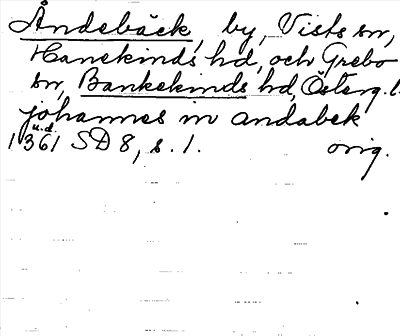 Åndebäck, by, Vists sn,
Hanekinds hd, och Grebo
sn, Bankekinds hd, Österg. l.
johannes in andabek
u.d.
1361 SD 8, s. 1. orig.